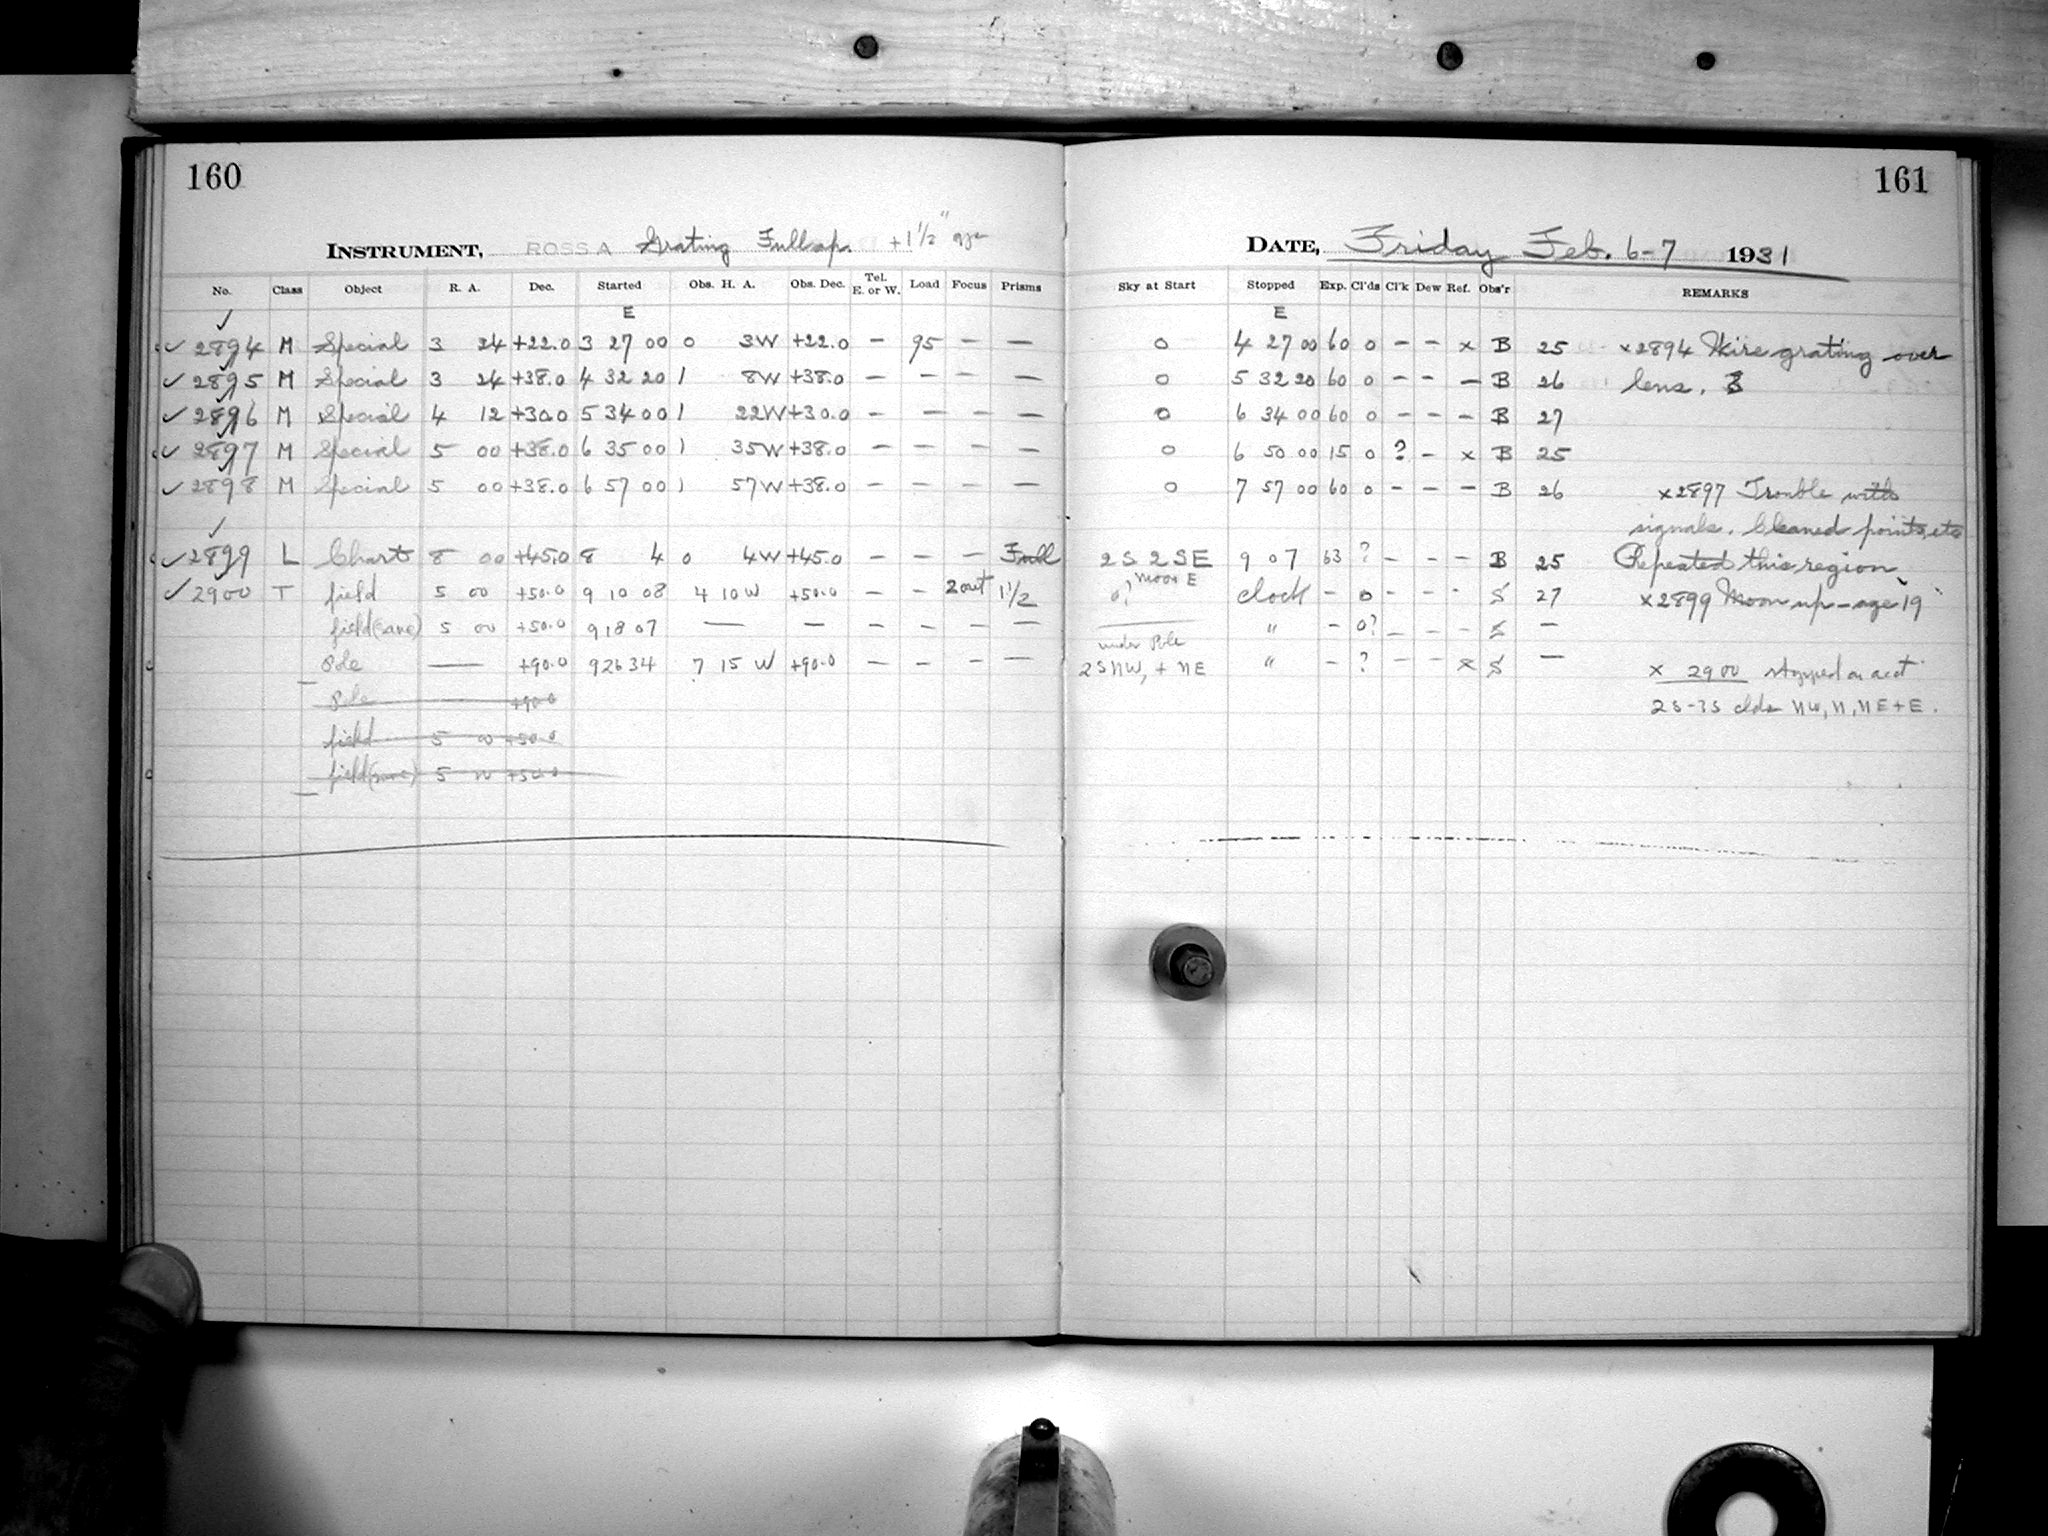 160
INSTRUMENT, ROSS A Grating Full ap. +1½"
No. Class Object R. A. Dec. Started Obs. H. A. Obs. Dec. Tel. E. or W. Load Focus Prisms
E
✓ 2894 M Special 3 24 +22.0 3 27 00 0 3W +22.0 — 95 — —
✓ 2895 M Special 3 24 +38.0 4 32 20 1 8W +38.0 — — — —
✓ 2896 M Special 4 12 +30.0 5 34 00 1 22W +30.0 — — — —
✓ 2897 M Special 5 00 +38.0 6 35 00 1 35W +38.0 — — — —
✓ 2898 M Special 5 00 +38.0 6 57 00 1 57W +38.0 — — — —
✓ 2899 L Chart 8 00 +45.0 8 4 0 4W +45.0 — — — Full
✓ 2900 T field 5 00 +50.0 9 10 08 4 10 W +50.0 — — 2 out 1½
field (same) 5 00 +50.0 9 18 07 — — — — — —
Pole — +90.0 9 26 34 7 15 W +90.0 — — — —
Pole +90.0
field 5 00 +50.0
field (same) 5 00 +50.0
161
DATE, Friday Feb. 6-7 1931
Sky at Start Stopped Exp. Cl'ds Cl'k Dew Ref. Obs'r REMARKS
E
0 4 27 00 60 0 — — x B 25 x2894 Wire grating over
0 5 32 20 60 0 — — — B 26 lens.
0 6 34 00 60 0 — — — B 27
0 6 50 00 15 0 ? — x B 25
0 7 57 00 60 0 — — — B 26 x2897 Trouble with
signals. Cleaned points, etc
2S 2SE 9 07 63 ? — — — B 25 Repeated this region
0? moon E clock — 0 — — — S 27 x2899 Moon up - age 19
" — 0? — — — S —
under Pole
2S NW, + NE " — ? — — x S — x 2900 stopped on acct
2S-3S clds NW, N, NE + E.